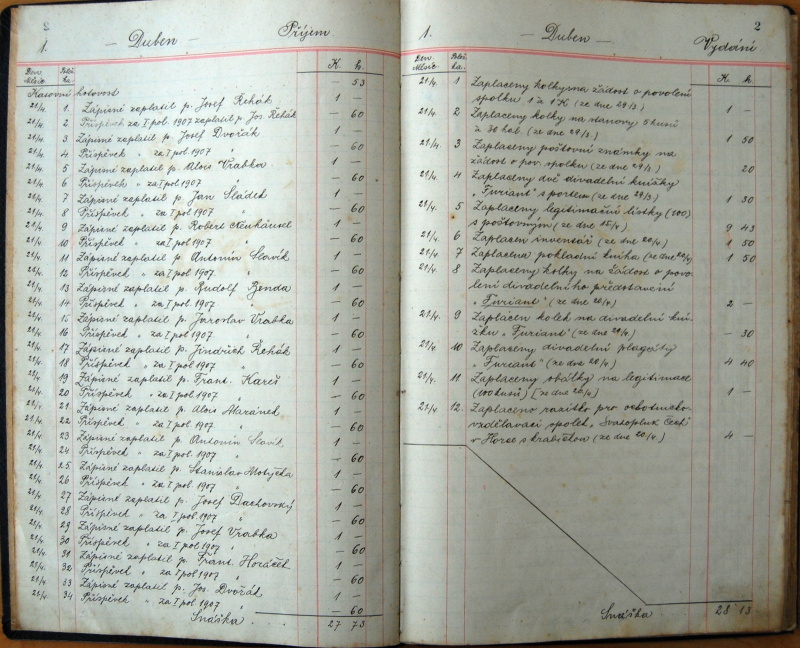 2
1.
— Duben —
Příjem
Den
Měsíc
Polož
ka.
K. h.
Kasovní hotovost — 53
21/4 1. Zápisné zaplatil p. Josef Řehák 1 —
21/4 2 Příspěvek za I pol 1907 zaplatil p. Jos. Řehák — 60
21/4 3 Zápisné zaplatil p. Josef Dvořák 1 —
21/4 4 Příspěvek " za I pol 1907 — 60
21/4 5 Zápisné zaplatil p. Alois Vrabka 1 —
21/4 6 Příspěvek " za I pol 1907 — 60
21/4 7 Zápisné zaplatil p. Jan Sládek 1 —
21/4 8 Příspěvek " za I pol. 1907 — 60
21/4 9 Zápisné zaplatil p. Robert Neuhäusel 1 —
21/4 10 Příspěvek " za I pol 1907 — 60
21/4 11 Zápisné zaplatil p. Antonín Slavík 1 —
21/4 12 Příspěvek " za I pol. 1907 — 60
21/4 13 Zápisné zaplatil p. Rudolf Benda 1 —
21/4 14 Příspěvek " za I pol. 1907 — 60
21/4 15 Zápisné zaplatil p. Jaroslav Vrabka 1 —
21/4 16 Příspěvek " za I pol. 1907 — 60
21/4 17 Zápisné zaplatil p. Jindřich Řehák 1 —
21/4 18 Příspěvek " za I pol. 1907 — 60
21/4 19 Zápisné zaplatil p. Frant. Kareš 1 —
21/4 20 Příspěvek " za I pol. 1907 " — 60
21/4 21 Zápisné zaplatil p. Alois Maránek 1 —
21/4 22 Příspěvek " za I pol. 1907 " — 60
21/4 23 Zápisné zaplatil p. Antonín Slavík 1 —
21/4 24 Příspěvek " za I pol. 1907 " — 60
21/4 25 Zápisné zaplatil p. Stanislav Motyčka 1 —
21/4 26 Příspěvek " za I pol. 1907 " — 60
21/4 27 Zápisné zaplatil p. Josef Duchovský 1 —
21/4 28 Příspěvek " za I pol. 1907 " — 60
21/4 29 Zápisné zaplatil p. Josef Vrabka 1 —
21/4 30 Příspěvek " za I pol 1907 " — 60
21/4 31 Zápisné zaplatil p. Frant. Horáček 1 —
21/4 32 Příspěvek " za I pol. 1907 " — 60
21/4 33 Zápisné zaplatil p. Jos. Dvořák 1 —
21/4 34 Příspěvek " za I pol 1907 " — 60
Snáška 27 73
2
1.
— Duben —
Vydání
Den
Měsíc
Polož
ka.
K h
21/4 1 Zaplaceny kolky na žádost o povolení
spolku 1 à 1 K (ze dne 29/3.) 1 —
21/4. 2 Zaplaceny kolky na stanovy 5 kusů
à 30 hal. (ze dne 29/3.) 1 50
21/4. 3 Zaplaceny poštovní známky na
žádost o pov. spolku (ze dne 29/3) 20
21/4. 4 Zaplaceny dvě divadelní knížky
"Furiant" s portem (ze dne 29/3) 1 30
21/4. 5 Zaplaceny legitimační lístky (100)
s poštovným (ze dne 15/4) 9 43
21/4. 6 Zaplacen inventář (ze dne 20/4) 1 50
21/4 7 Zaplacena pokladní kniha (ze dne 20/4) 1 50
21/4. 8 Zaplaceny kolky na žádost o povo-
lení divadelního představení
"Furiant" (ze dne 20/4) 2 —
21/4. 9 Zaplacen kolek na divadelní kní-
žku "Furiant" (ze dne 20/4) — 30
21/4. 10 Zaplaceny divadelní plagáty
"Furiant" (ze dne 20/4) 4 40
21/4. 11 Zaplaceny obálky na legitimace
(100 kusů) (ze dne 20/4) 1 —
21/4. 12. Zaplaceno razítko pro ochotnicko-
vzdělávací spolek "Svatopluk Čech"
v Horce s krabičkou (ze dne 20/4.) 4 —
Snáška 28 13